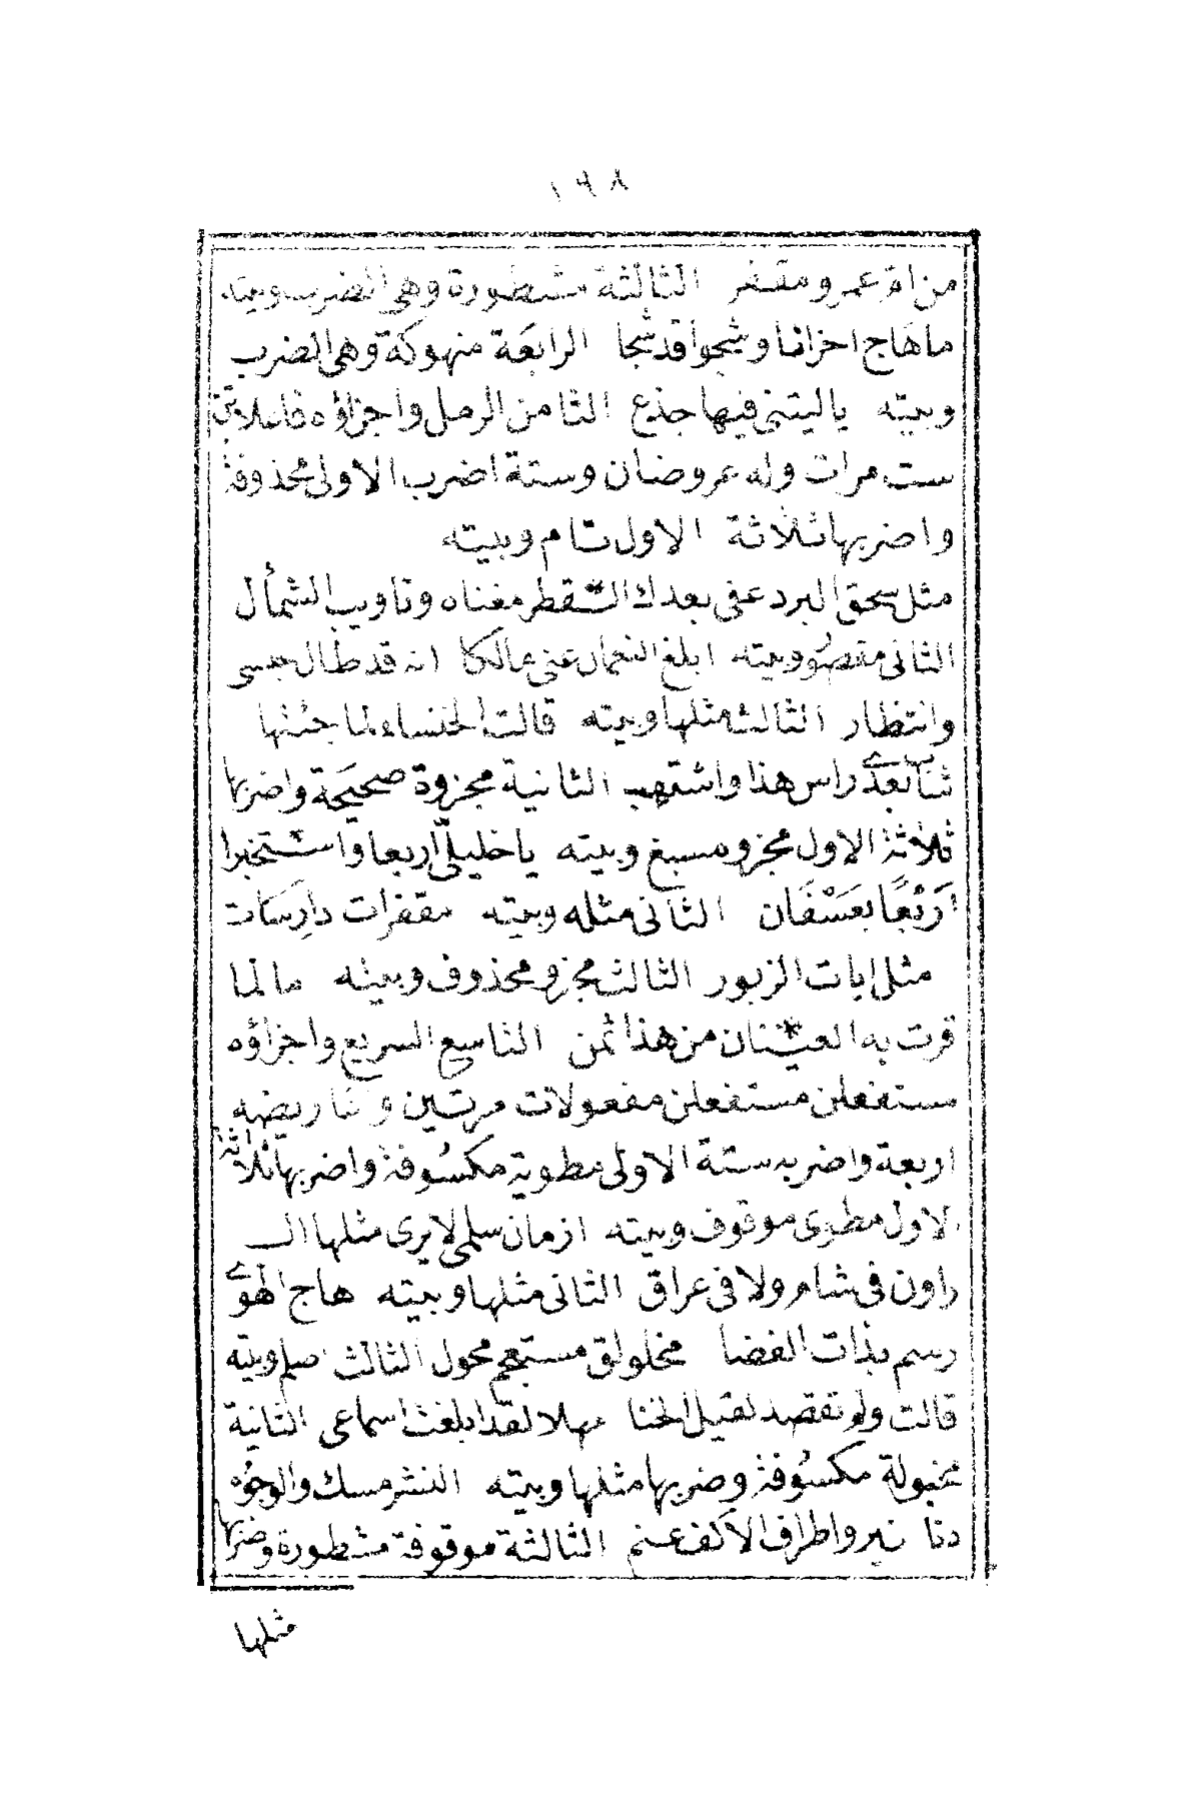 ١٩٨
من ام عمرو مقفر الثالثة مشطورة وهى الضرب وبيته
ما هَاج احزانا وشجوا قد شجا الرابعَة منهوكة وهى الضرب
وبيته ياليتنى فيها جذع الثامن الرمل واجزاؤه فاعلاتن
ست مرات وله عروضان وستة اضرب الاولى محذوفة
واضربها ثلاثة الاول تام وبيته
مثل سحق البرد عفى بعدك القطر مغناه وتاويب الشمأل
الثانى مقصُور وبيته ابلغ النعمان عنى مالكا انه قد طال حبسى
وانتظار الثالث مثلها وبيته قالت الخنساء لما جئتها
شاب بعدى راس هذا واشتهب الثانية مجزوة صحيحَة واضربها
ثلاثة الاول مجزو مسبغ وبيته يا خليلىّ اربعا واستخبرا
رَبْعًا بعَسْفَان الثانى مثله وبيته مقفرات دارسَات
مثل ايات الزبور الثالث مجزو محذوف وبيته ما لما
قرت به العينان من هذا ثمن التاسع السريع واجزاؤه
مستفعلن مستفعلن مفعولات مرتين و عاريضه
اربعة واضربه ستة الاولى مطوية مكسُوفة واضربها ثلاثة
الاول مطوى موقوف وبيته ازمان سلمى لا يرى مثلها الـ
راون فى شام ولا فى عراق الثانى مثلها وبيته هاج الهوى
رسم بذات الغضا مخلولق مستعجم محول الثالث اصلم وبيته
قالت ولم تقصد لقيل الخنا مهلا لقد ابلغت اسماعى الثانية
مخبولة مكسُوفة وضربها مثلها وبيته النشر مسك والوجُوه
دنا نير واطراف الاكف عنم الثالثة موقوفة مشطورة وضربها
مثلها